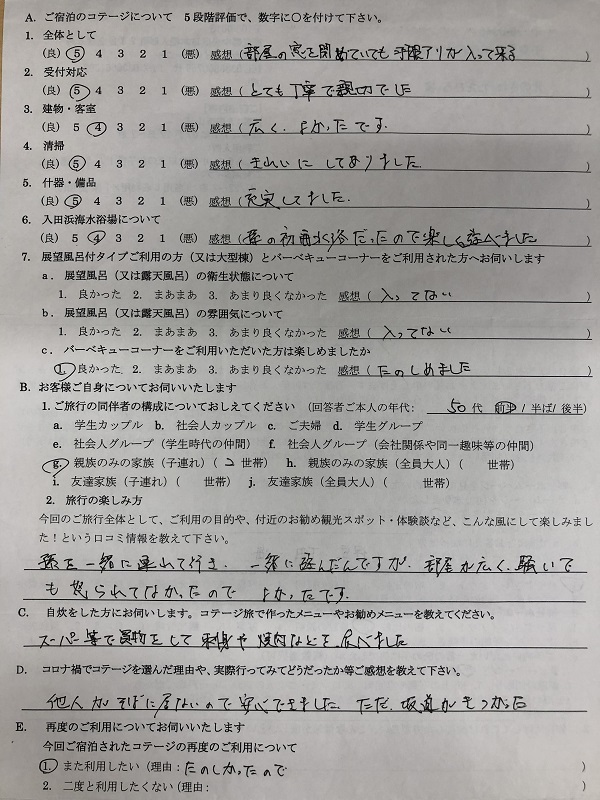 A. ご宿泊のコテージについて 5段階評価で、数字に○を付けて下さい。
1. 全体として
(良) 5 4 3 2 1 (悪) 感想 ( 部屋の窓を閉めていても 羽アリが入って来る )
2. 受付対応
(良) 5 4 3 2 1 (悪) 感想 ( とても丁寧で親切でした )
3. 建物・客室
(良) 5 4 3 2 1 (悪) 感想 ( 広く、よかったです。 )
4. 清掃
(良) 5 4 3 2 1 (悪) 感想 ( きれいにしてありました )
5. 什器・備品
(良) 5 4 3 2 1 (悪) 感想 ( 充実してました。 )
6. 入田浜海水浴場について
(良) 5 4 3 2 1 (悪) 感想 ( 孫の初海水浴だったので楽しく遊べました )
7. 展望風呂付タイプご利用の方(又は大型棟)とバーベキューコーナーをご利用された方へお伺いします
a. 展望風呂(又は露天風呂)の衛生状態について
1. 良かった 2. まあまあ 3. あまり良くなかった 感想 ( 入ってない )
b. 展望風呂(又は露天風呂)の雰囲気について
1. 良かった 2. まあまあ 3. あまり良くなかった 感想 ( 入ってない )
c. バーベキューコーナーをご利用いただいた方は楽しめましたか
1. 良かった 2. まあまあ 3. あまり良くなかった 感想 ( たのしめました )
B. お客様ご自身についてお伺いいたします
1. ご旅行の同伴者の構成についておしえてください (回答者ご本人の年代: 50 代 前半/半ば/後半)
a. 学生カップル b. 社会人カップル c. ご夫婦 d. 学生グループ
e. 社会人グループ(学生時代の仲間) f. 社会人グループ(会社関係や同一趣味等の仲間)
g. 親族のみの家族(子連れ)( 2 世帯) h. 親族のみの家族(全員大人)( 世帯)
i. 友達家族(子連れ)( 世帯) j. 友達家族(全員大人)( 世帯)
2. 旅行の楽しみ方
今回のご旅行全体として、ご利用の目的や、付近のお勧め観光スポット・体験談など、こんな風にして楽しみまし
た!という口コミ情報を教えて下さい。
孫を一緒に連れて行き、一緒に遊んだんですが、部屋が広く、騒いで
も怒られてなかったので よかったです。
C. 自炊をした方にお伺いします。コテージ旅で作ったメニューやお勧めメニューを教えてください。
スーパー等で買物をして 刺身や焼肉などを食べました
D. コロナ禍でコテージを選んだ理由や、実際行ってみてどうだったか等ご感想を教えて下さい。
他人がそばに居ないので安心できました。ただ、坂道がきつかった
E. 再度のご利用についてお伺いいたします
今回ご宿泊されたコテージの再度のご利用について
1. また利用したい(理由: たのしかったので )
2. 二度と利用したくない(理由: )